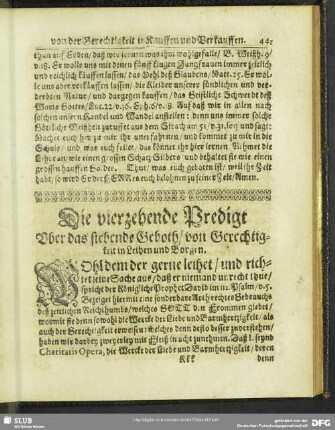 von der Gerechtigkeit in Kauffen und Verkauffen. 44
thun auf Erden/ daß wir lernen was ihm wolgefalle/ B. Weißh: 9/
v. 18. Er wolle uns mit denen fünff klugen Jungfrauen immer zeitlich
und reichlich käuffen lassen/ das Oehl deß Glaubens/ Matt. 25. Er wol-
le uns aber verkäuffen lassen/ die Kleider unserer sündlichen und ver-
derbten Natur/ und dargegen kauffen/ das Geistliche Schwerd deß
Worts Gottes/ Luc. 22. v. 36. Eph. 6/ v. 8. Auf daß wir in allen
solche unsern Handel und Wandel anstellen: denn uns immer solche
Göttliche Weißheit zurufft aus dem Sirach am 51/ v. 31. seq; und sagt:
Machet euch her zu mir ihr unerfahrnen/ und kommet zu mir in die
Schule/ und was euch fehlet/ das könnet ihr hier lernen Nehmet die
Lehre an/ wie einen grossen Schatz Silbers/ und behaltet sie wie einen
grossen hauffen Goldes. Thut/ was euch geboten ist/ weil ihr Zeit
habt/ so wird Er der HERR es euch belohnen zu seiner Zeit/ Amen.
Die vierzehende Predigt
Uber das siebende Geboth/ von Gerechtig-
keit in Leihen und Borgen.
WOhl dem der gerne leihet/ und rich-
tet seine Sache aus/ daß er niemand unrecht thue/
spricht der Königliche Prophet David im 112. Psalm/ v. 5.
Bezeiget hiermit eine sonderbare Art rechtes Gebrauchs
deß zeitlichen Reichthumbs/ welches GOTT den Frommen giebet/
womit sie denn sowohl die Wercke der Liebe und Barmhertzigkeit/ als
auch der Gerechtigkeit erweisen: Welches denn desto besser zuverstehen/
haben wir darbey zweyerley mit Fleiß in acht zunehmen. Daß 1. seynd
Charitatis Opera, die Werck der Liebe und Barmhertzigkeit/ deren
Kkk denn
SLUB
Wir führen Wissen.
http://digital.slub-dresden.de/
gefördert von der
Deutschen Forschungsgemeinschaft
DFG